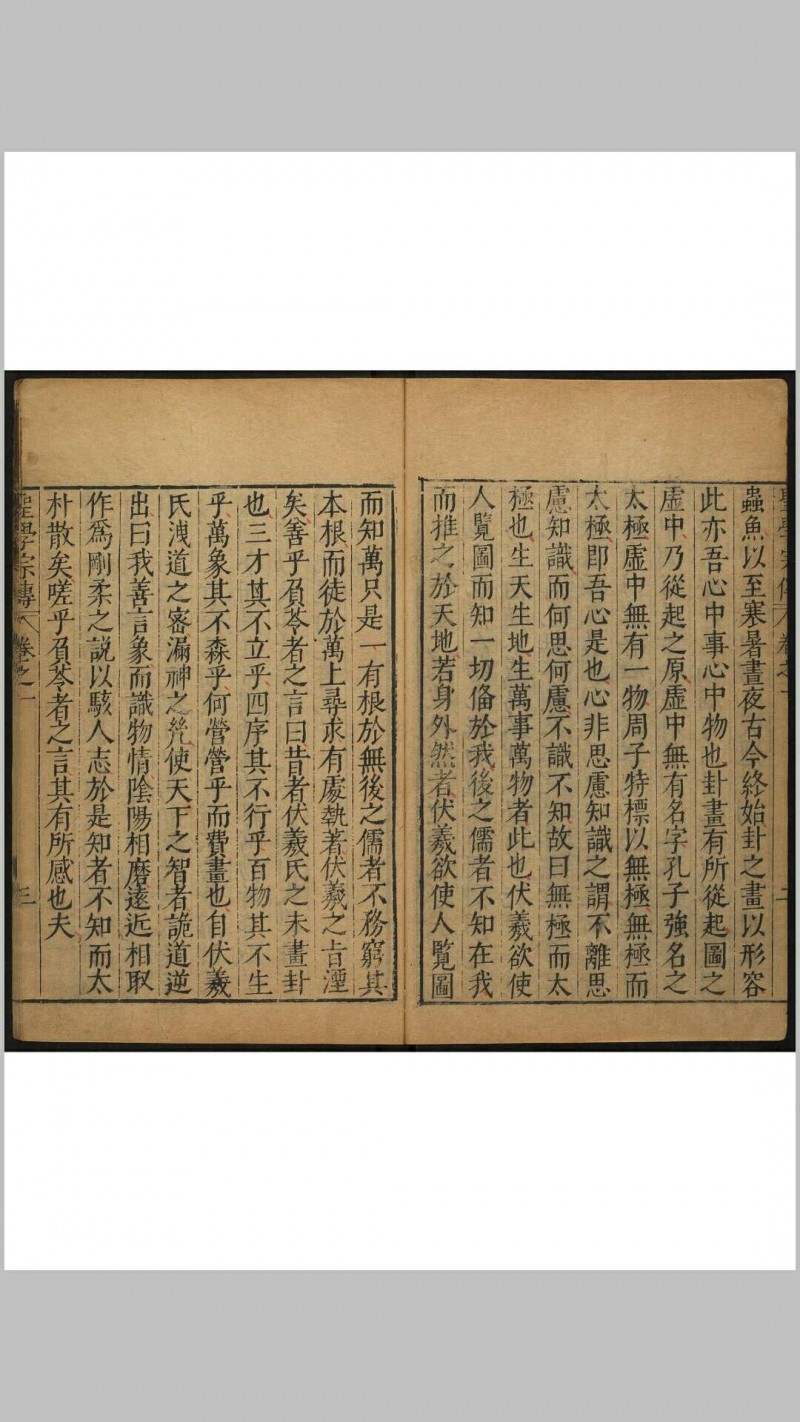 聖學宗傳 卷之一 二
蟲魚以至寒暑晝夜古今終始卦之畫以形容
此亦吾心中事心中物也卦畫有所從起圖之
虛中乃從起之原虛中無有名字孔子強名之
太極虛中無有一物周子特標以無極無極而
太極卽吾心是也心非思慮知識之謂不離思
慮知識而何思何慮不識不知故曰無極而太
極也生天生地生萬事萬物者此也伏羲欲使
人覽圖而知一切俻於我後之儒者不知在我
而推之於天地若身外然者伏羲欲使人覽圖
而知萬只是一有根於無後之儒者不務窮其
本根而徒於萬上尋求有處執著伏羲之㫖湮
矣善乎負苓者之言曰昔者伏羲氏之未畫卦
也三才其不立乎四序其不行乎百物其不生
乎萬象其不森乎何營營乎而費畫也自伏羲
氏洩道之密漏神之㡬使天下之智者詭道逆
出曰我善言象而識物情陰陽相磨遠近相取
作爲剛柔之說以駭人志於是知者不知而太
朴散矣嗟乎負苓者之言其有所感也夫
聖學宗傳 卷之一 三